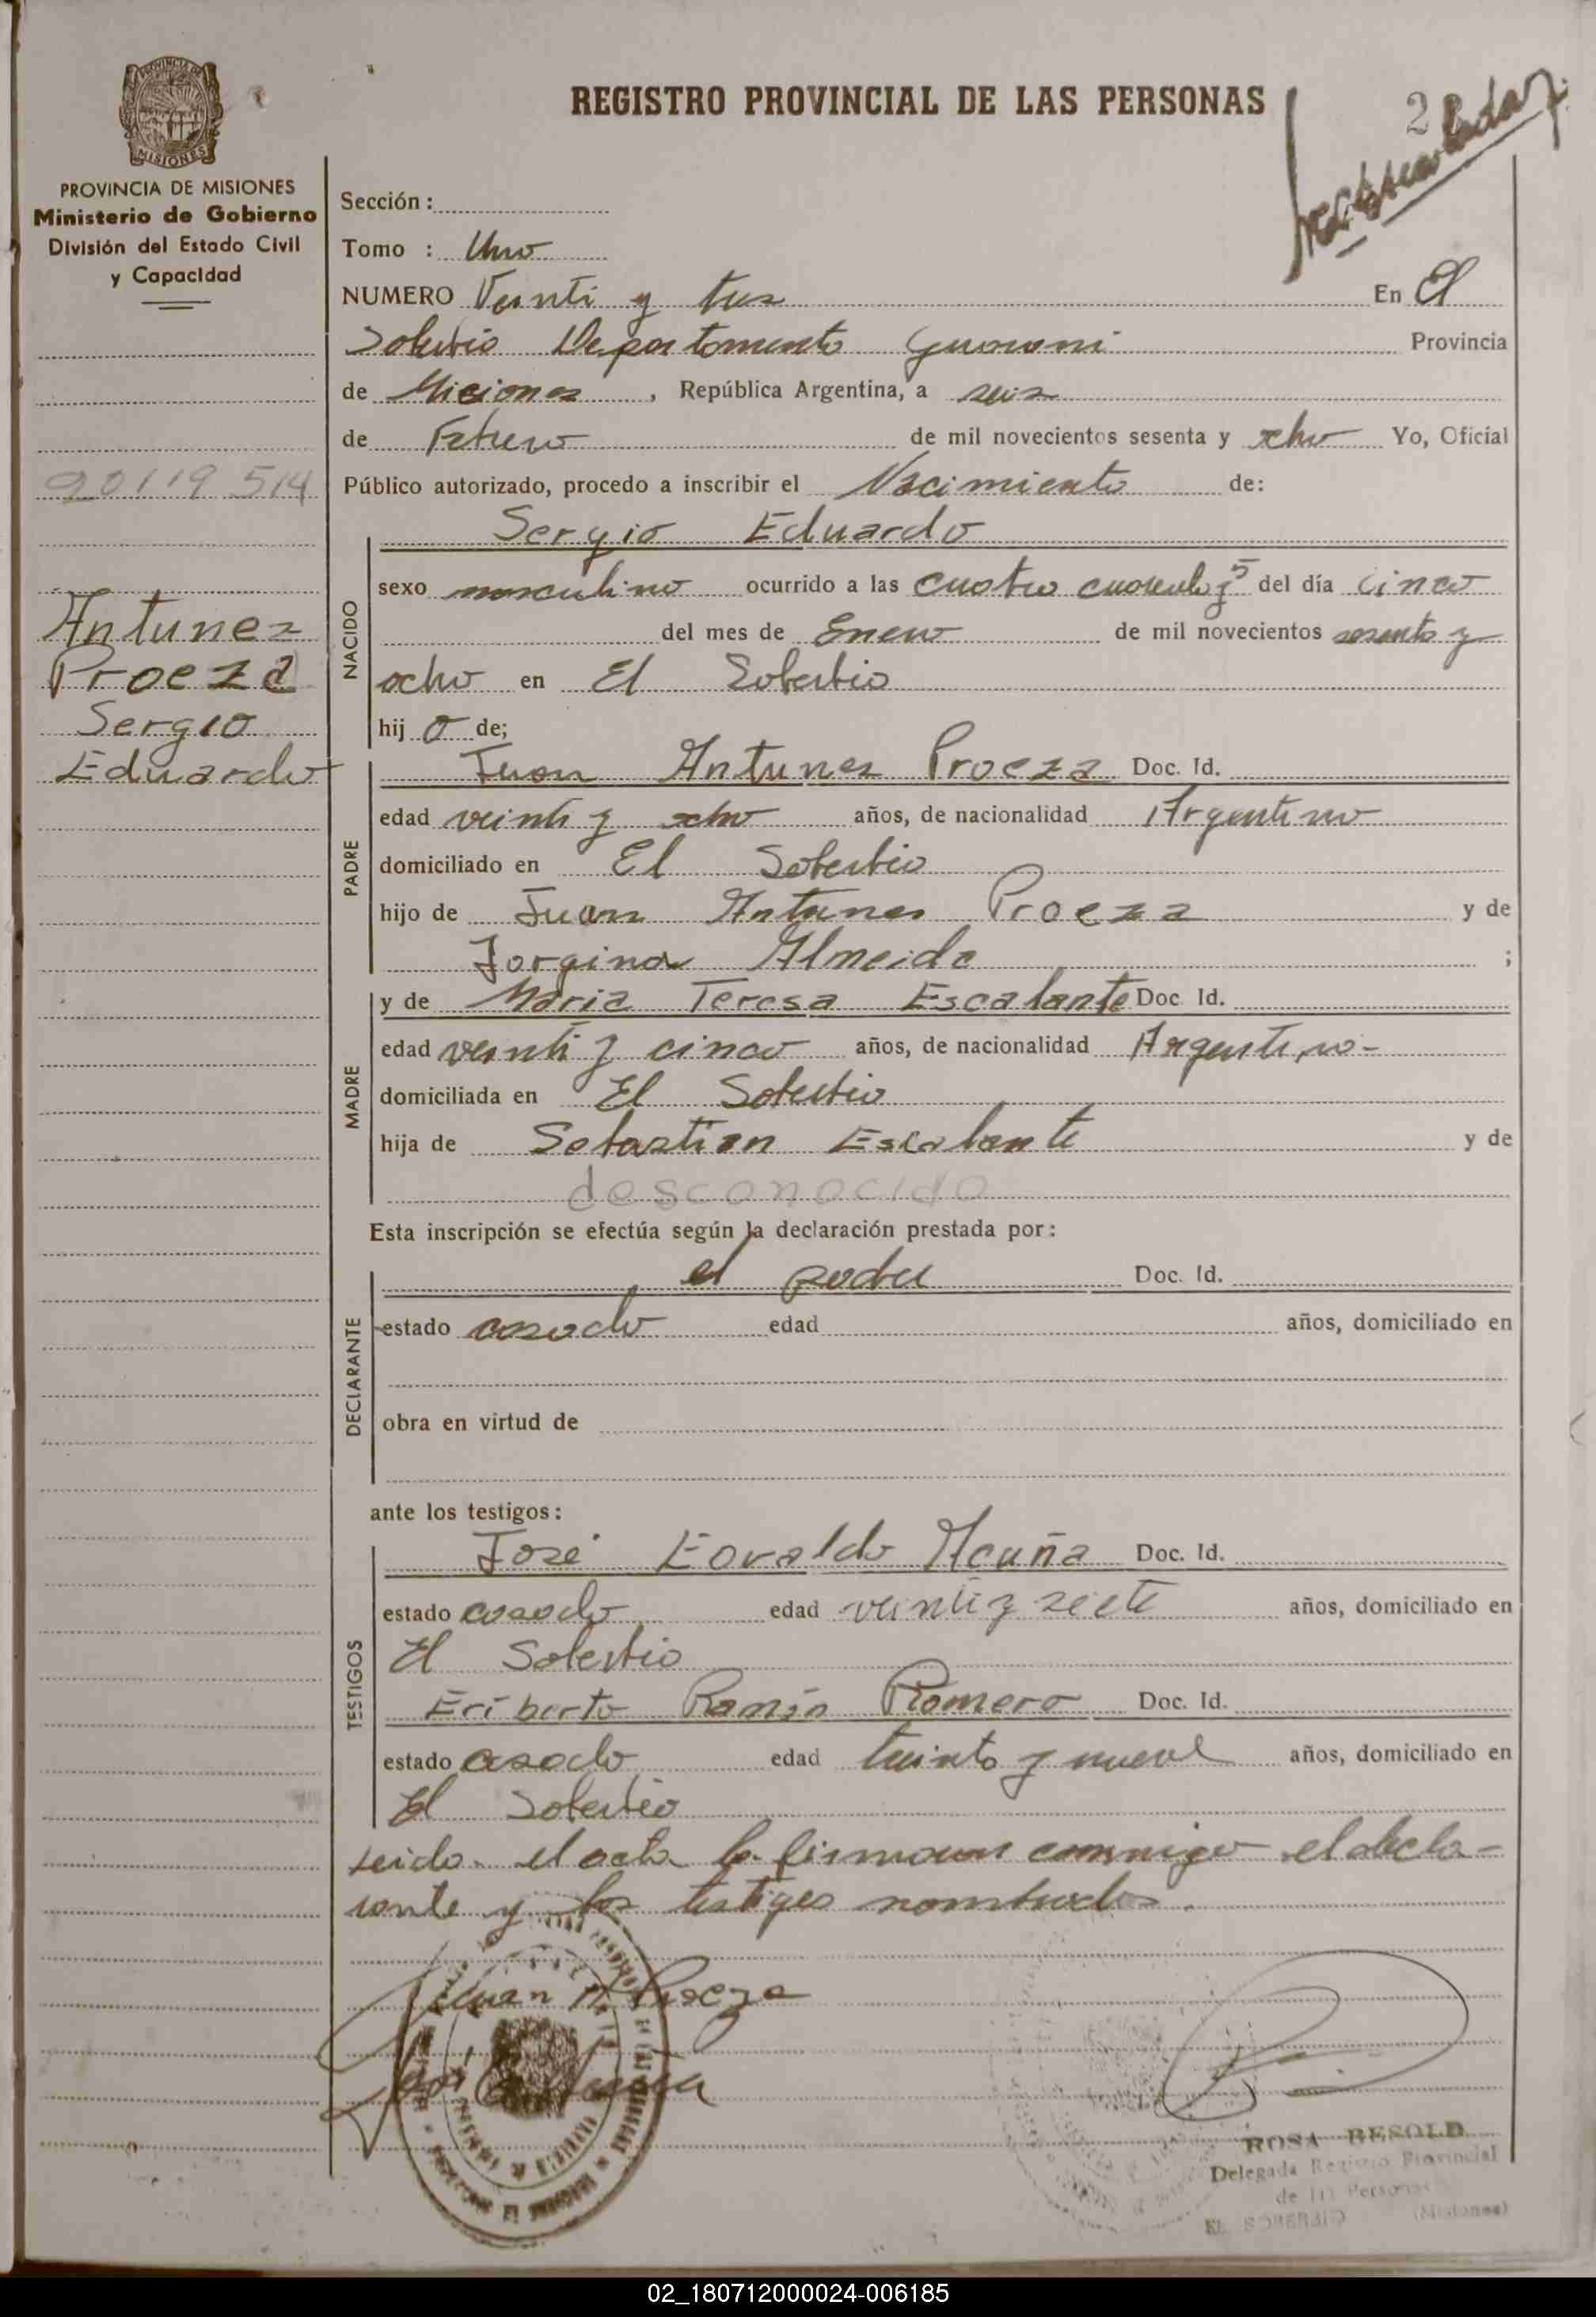 REGISTRO PROVINCIAL DE LAS PERSONAS
2
MISIONES
PROVINCIA DE MISIONES
Ministerio de Gobierno
División del Estado Civil
y Capacidad
Sección :
Tomo : Uno
NUMERO Veinti y tres En El
Soberbio Departamento Guarani Provincia
de Misiones , República Argentina, a seis
de Febrero de mil novecientos sesenta y ocho Yo, Oficial
20119 514
Público autorizado, procedo a inscribir el Nacimiento de:
Sergio Eduardo
NACIDO
sexo masculino ocurrido a las cuatro cuarenta y 5 del día cinco
del mes de Enero de mil novecientos sesenta y
ocho en El Soberbio
hij o de;
Antunez
Proeza
Sergio
Eduardo
PADRE
Juan Antunes Proeza Doc. Id.
edad veinti y ocho años, de nacionalidad Argentino
domiciliado en El Soberbio
hijo de Juan Antunes Proeza y de
Jorgina Almeida ;
MADRE
y de Maria Teresa Escalante Doc. Id.
edad veinti y cinco años, de nacionalidad Argentino-
domiciliada en El Soberbio
hija de Sebastian Escalante y de
desconocido
Esta inscripción se efectúa según la declaración prestada por:
DECLARANTE
el padre Doc. Id.
estado casado edad años, domiciliado en
obra en virtud de
ante los testigos:
TESTIGOS
José Eovaldo Acuña Doc. Id.
estado casado edad veinti y siete años, domiciliado en
El Soberbio
Eriberto Ramón Romero Doc. Id.
estado casado edad treinta y nueve años, domiciliado en
El Soberbio
Leida el acta la firmaron conmigo el decla-
rante y los testigos nombrados.
Juan A. Proeza
ROSA BESOLD
Delegada Registro Provincial
de las Personas
EL SOBERBIO (Misiones)
02_180712000024-006185